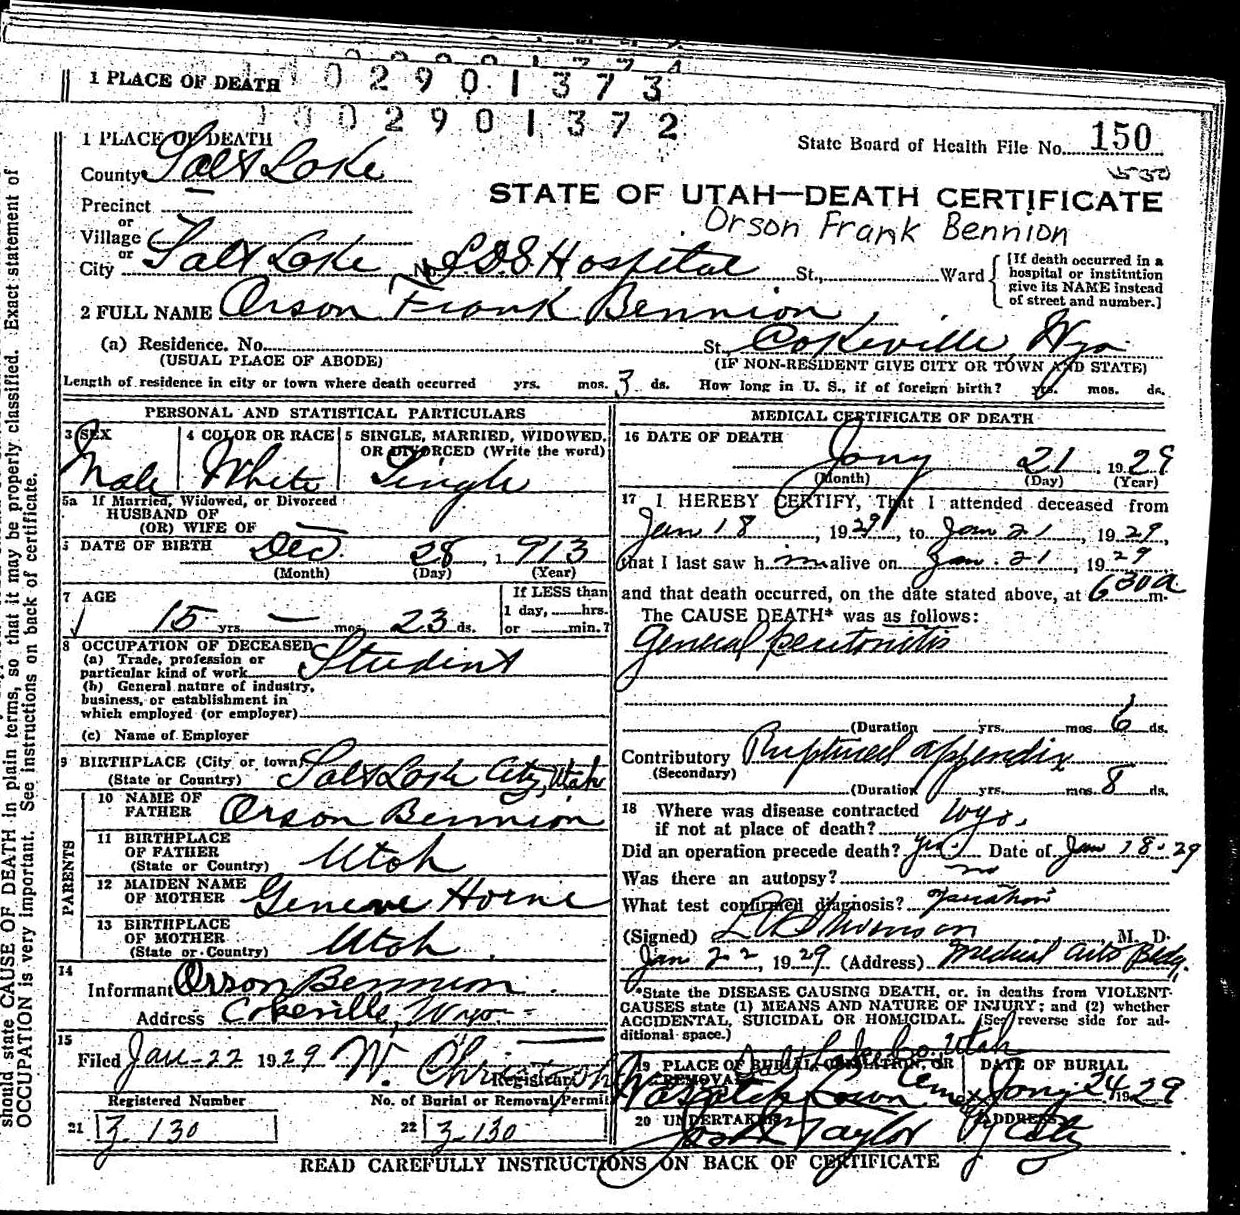 1 PLACE OF DEATH 0 2 9 0 1 3 7 3
0 0 2 9 0 1 3 7 2
1 PLACE OF DEATH
State Board of Health File No. 150
County Salt Lake
STATE OF UTAH—DEATH CERTIFICATE
Precinct
Orson Frank Bennion
or
Village
or
City Salt Lake No. L D S Hospital St., Ward
[If death occurred in a
hospital or institution
give its NAME instead
of street and number.]
2 FULL NAME Orson Frank Bennion
(a) Residence. No. St., Cokeville, Wyo
(USUAL PLACE OF ABODE) (IF NON-RESIDENT GIVE CITY OR TOWN AND STATE)
Length of residence in city or town where death occurred yrs. mos. 3 ds. How long in U. S., if of foreign birth? yrs. mos. ds.
PERSONAL AND STATISTICAL PARTICULARS
3 SEX 4 COLOR OR RACE 5 SINGLE, MARRIED, WIDOWED,
OR DIVORCED (Write the word)
Male White Single
5a If Married, Widowed, or Divorced
HUSBAND OF
(OR) WIFE OF —
DATE OF BIRTH Dec 28, 1913
(Month) (Day) (Year)
7 AGE If LESS than
1 day, hrs.
15 yrs. — mos. 23 ds. or min.?
8 OCCUPATION OF DECEASED
(a) Trade, profession or
particular kind of work Student
(b) General nature of industry,
business, or establishment in
which employed (or employer)
(c) Name of Employer
9 BIRTHPLACE (City or town)
(State or Country) Salt Lake City, Utah
PARENTS
10 NAME OF
FATHER Orson Bennion
11 BIRTHPLACE
OF FATHER
(State or Country) Utah
12 MAIDEN NAME
OF MOTHER Geneve Horne
13 BIRTHPLACE
OF MOTHER
(State or Country) Utah
14
Informant Orson Bennion
Address Cokeville, Wyo
15
Filed Jan-22 1929 W.
Registrar
Registered Number No. of Burial or Removal Permit
21 Z 130 22 Z 130
MEDICAL CERTIFICATE OF DEATH
16 DATE OF DEATH
Jany 21, 1929
(Month) (Day) (Year)
17 I HEREBY CERTIFY, That I attended deceased from
Jan 18, 1929, to Jan 21, 1929,
that I last saw h im alive on Jan. 21, 1929
and that death occurred, on the date stated above, at 630 a m.
The CAUSE DEATH* was as follows:
General peritonitis
(Duration yrs. mos. 6 ds.
Contributory Ruptured appendix
(Secondary)
(Duration yrs. mos. 8 ds.
18 Where was disease contracted
if not at place of death? Wyo.
Did an operation precede death? yes. Date of Jan 18-29
Was there an autopsy? no
What test confirmed diagnosis? operation
(Signed) M. D.
Jan 22, 1929 (Address) Medical Arts Bldg.
*State the DISEASE CAUSING DEATH, or, in deaths from VIOLENT
CAUSES state (1) MEANS AND NATURE OF INJURY; and (2) whether
ACCIDENTAL, SUICIDAL OR HOMICIDAL. (See reverse side for ad-
ditional space.)
Salt Lake Co. Utah
19 PLACE OF BURIAL, CREMATION, OR DATE OF BURIAL
REMOVAL
Wasatch Lawn Cem Jany 24 1929
20 UNDERTAKER ADDRESS
Taylor City
READ CAREFULLY INSTRUCTIONS ON BACK OF CERTIFICATE
should state CAUSE OF DEATH in plain terms, so that it may be properly classified. Exact statement of
OCCUPATION is very important. See instructions on back of certificate.